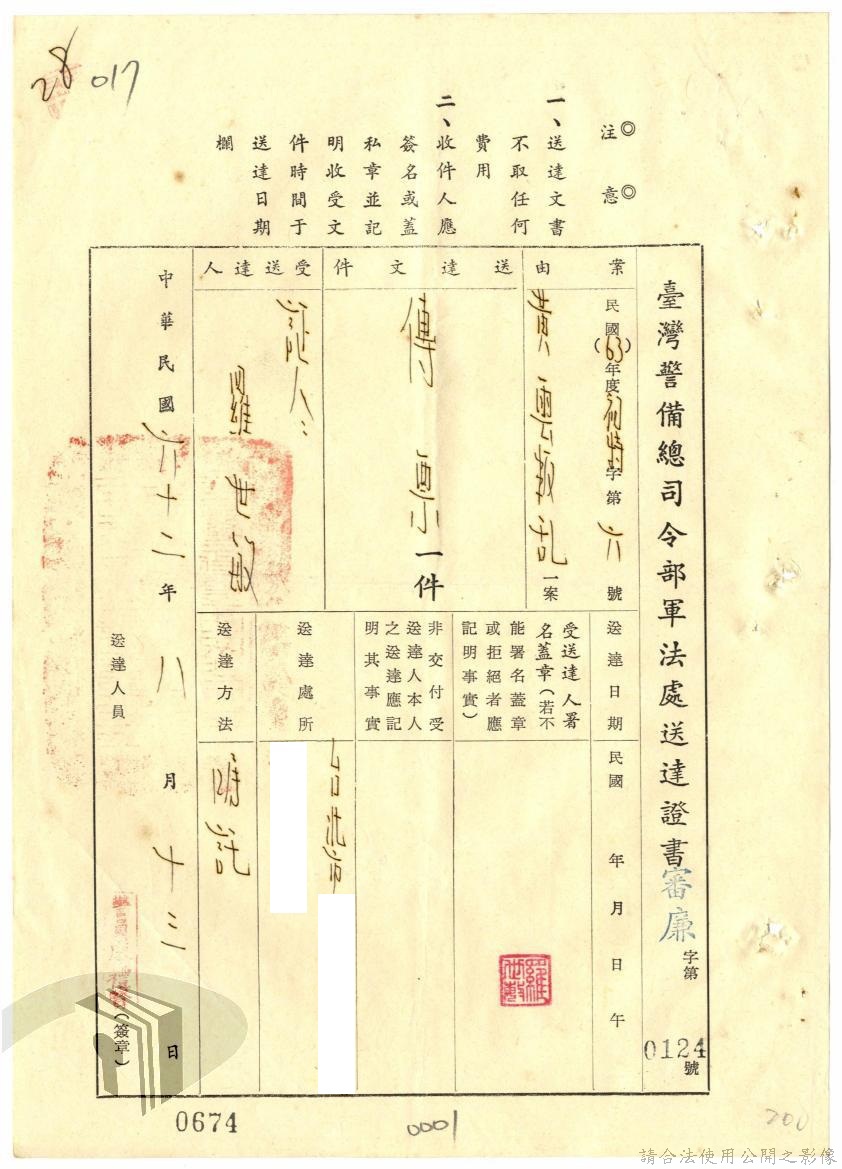 28 017
◎注意◎
一、送達文書
不取任何
費用
二、收件人應
簽名或蓋
私章並記
明收受文
件時間于
送達日期
欄
臺灣警備總司令部軍法處送達證書 審廉字第0124號
案由
民國(63)年度初特字第六號
黃雲叛乱一案
送達文件
傳票一件
受送達人
証人:
羅世敏
送達日期
民國 年 月 日 午
受送達人署
名蓋章(若不
能署名蓋章
或拒絕者應
記明事實)
羅世敏
非交付受
送達人本人
之送達應記
明其事實
送達處所
台北市
送達方法
囑託
中華民國六十二年八月十三日
送達人員
(簽章)
0674
0001
200
請合法使用公開之影像